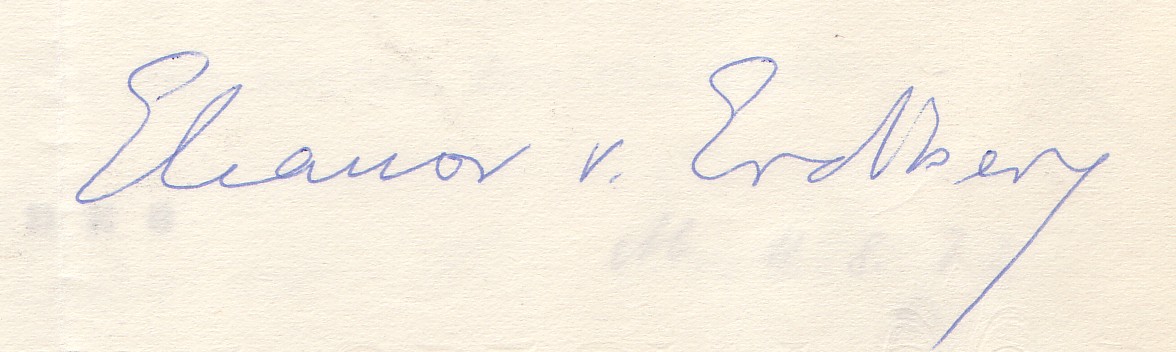 Eleanor v. Erdberg